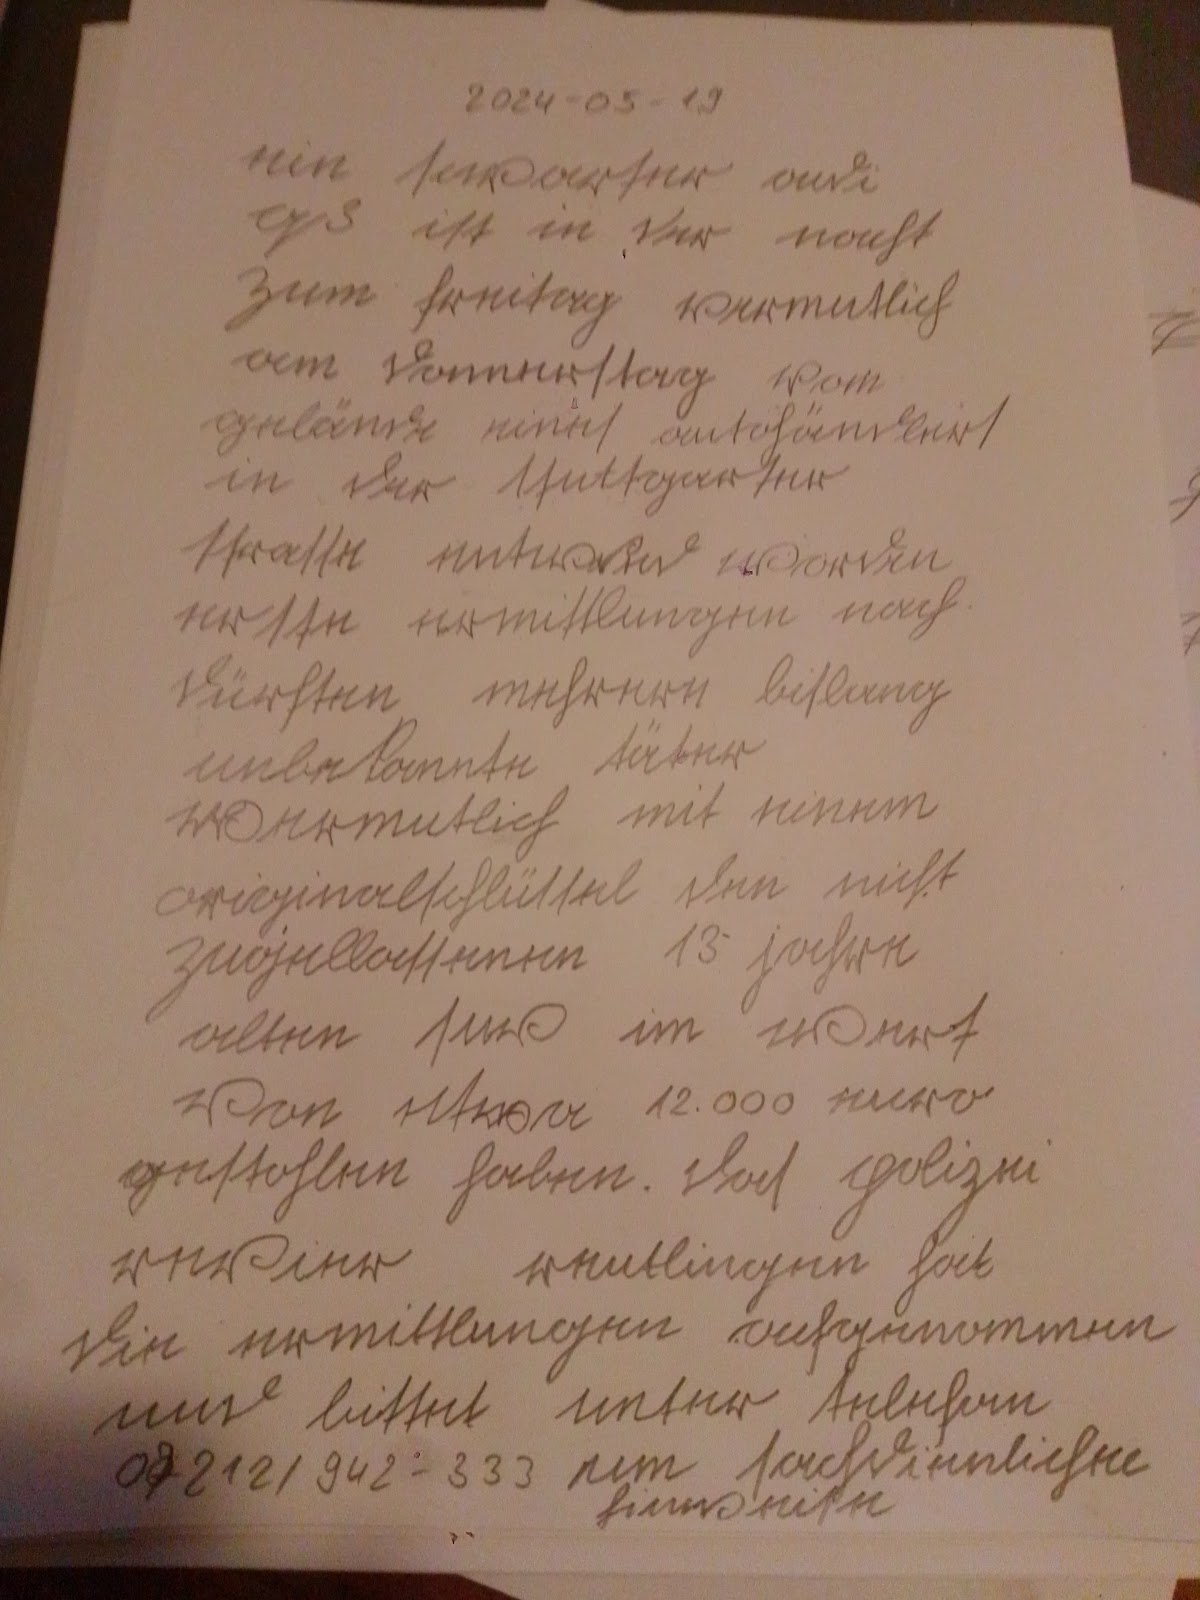 2024-05-19
ein schwarzer audi
q3 ist in der nacht
zum freitag vermutlich
am donnerstag vom
gelände eines autohändlers
in der stuttgarter
strasse entwend worden
erste ermittlungen nach
dürften mehrere bislang
unbekannte täter
vermutlich mit einem
originalschlüssel den nicht
zugellassenen 13 jahre
alten suv im wert
von etwa 12.000 euro
gestohlen haben. das polizei
revier reutlingen hat
die ermittlungen aufgenommen
und bittet unter telefon
07212/942-333 um sachdienlichne
hinweise